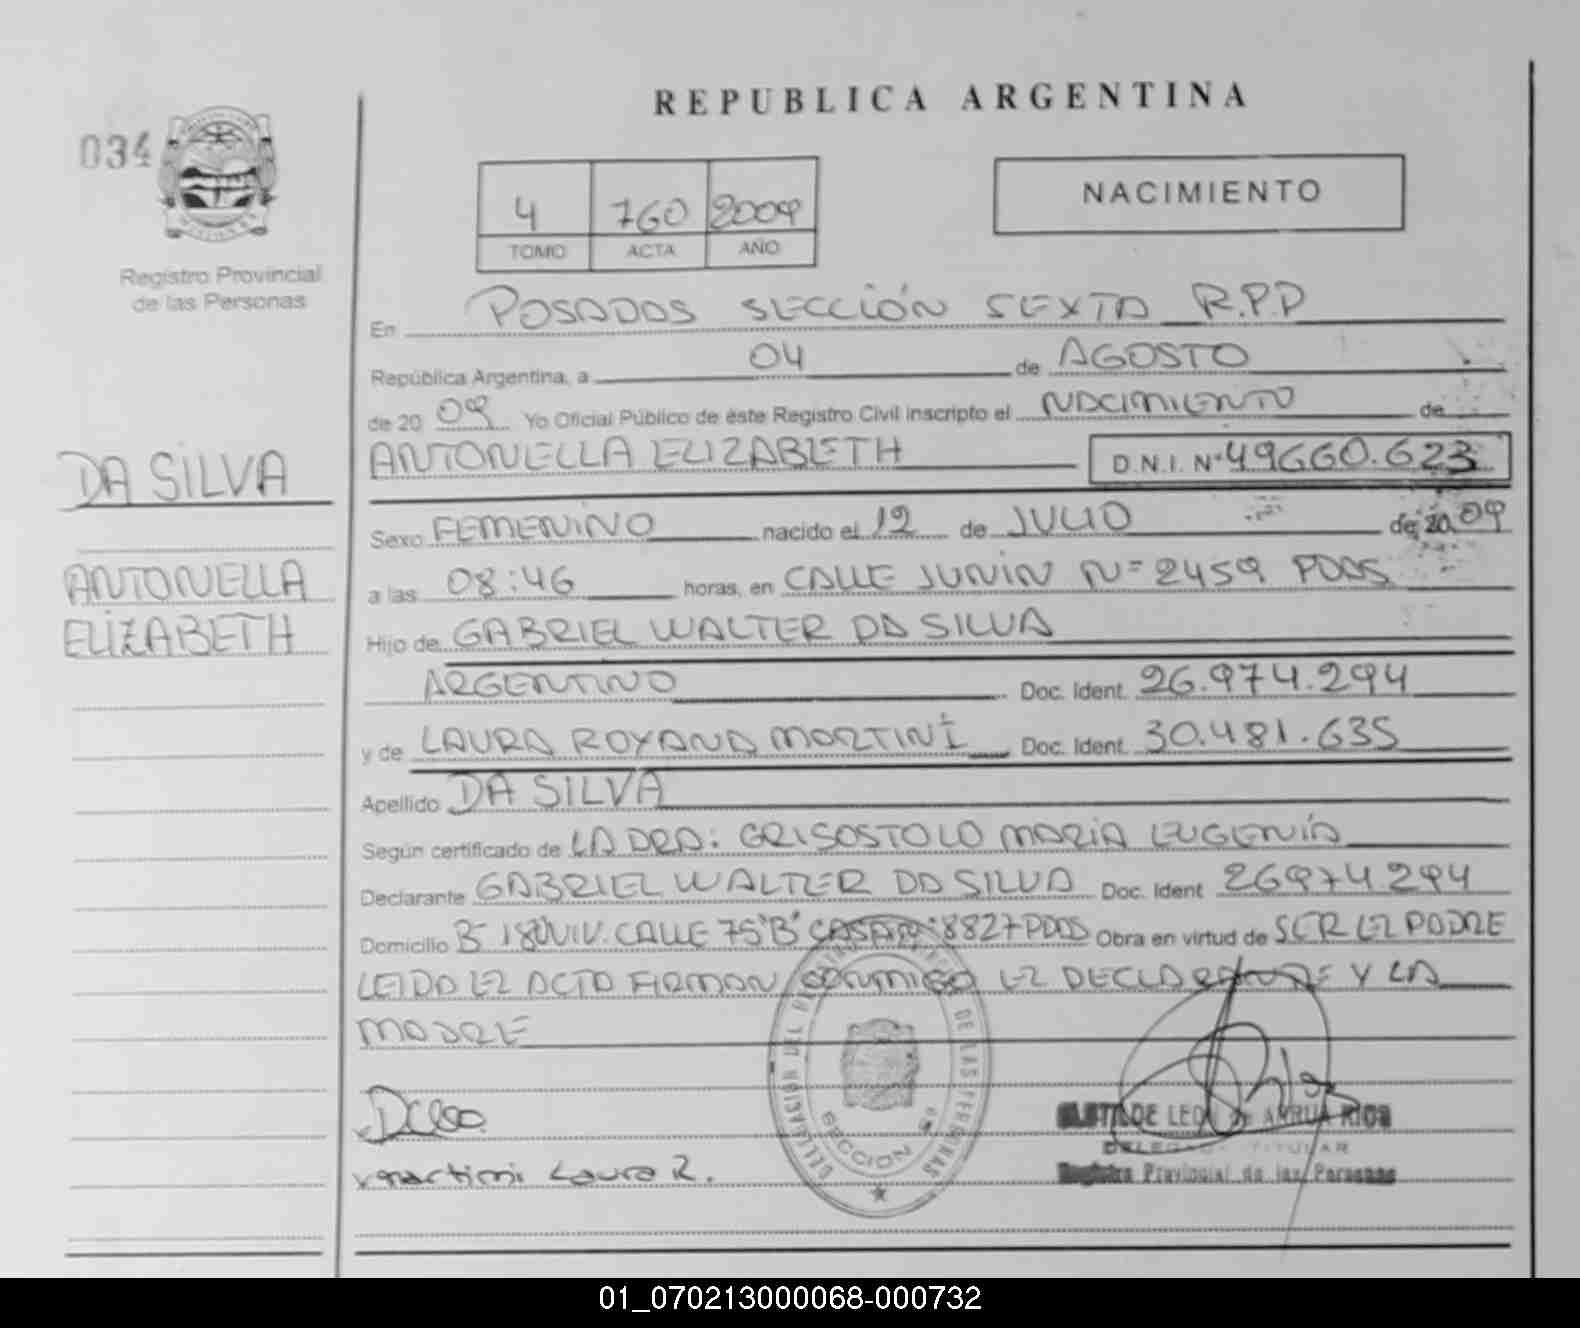 REPUBLICA ARGENTINA
034
4 760 2009
TOMO ACTA AÑO
NACIMIENTO
Registro Provincial
de las Personas
En POSADAS SECCIÓN SEXTA R.P.P
República Argentina, a 04 de AGOSTO
de 20 09 Yo Oficial Público de éste Registro Civil inscripto el NACIMIENTO de
DA SILVA
ANTONELLA ELIZABETH D.N.I. Nº 49660.623
Sexo FEMENINO nacido el 12 de JULIO de 20 09
ANTONELLA
ELIZABETH
a las 08:46 horas, en CALLE JUNIN Nº 2459 PDAS
Hijo de GABRIEL WALTER DA SILVA
ARGENTINO Doc. Ident. 26.974.294
y de LAURA ROXANA MARTINI Doc. Ident. 30.481.635
Apellido DA SILVA
Según certificado de LA DRA: GRISOSTOLO MARIA EUGENIA
Declarante GABRIEL WALTER DA SILVA Doc. Ident 26974294
Domicilio Bº 180 VIV. CALLE 75"B" CASA Nº 8827 PDAS Obra en virtud de SER EL PADRE
LEIDO EL ACTO FIRMAN CONMIGO EL DECLARANTE Y LA
MADRE
DELEGACION DEL REGISTRO DE LAS PERSONAS
SECCION 6ª
Martini Laura R.
CLOTILDE LEON de ARRUA RIOS
DELEGADA TITULAR
Registro Provincial de las Personas
01_070213000068-000732